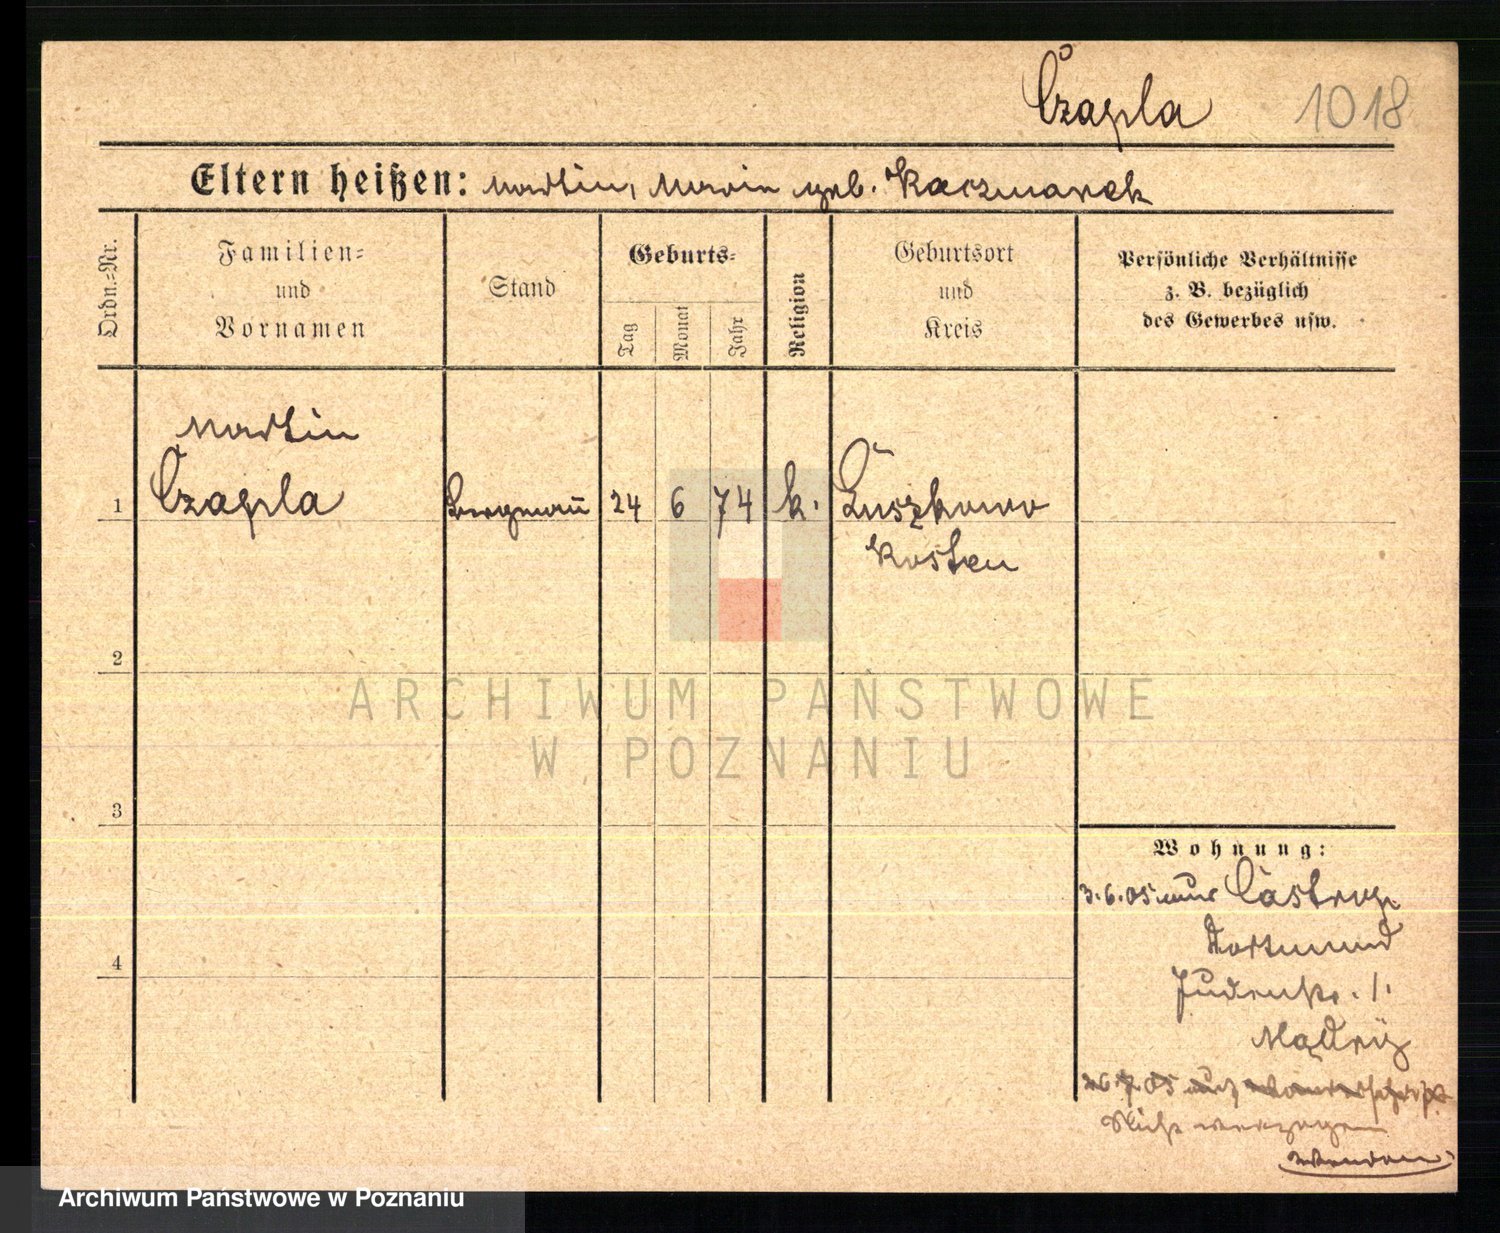 Czapla 1018
Eltern heißen: Martin, Maria geb. Kaczmarek
Ordn.-Nr.
Familien-
und
Vornamen
Stand
Geburts-
Tag
Monat
Jahr
Religion
Geburtsort
und
Kreis
Persönliche Verhältnisse
z. B. bezüglich
des Gewerbes usw.
Martin
1 Czapla Bergmann 24 6 74 k. Zuszkowo
Kosten
2
ARCHIWUM PAŃSTWOWE
W POZNANIU
3
Wohnung:
3.6.05 Castrop
Dortmund
4
26.7.05
Nicht verzogen
Wenden
Archiwum Państwowe w Poznaniu